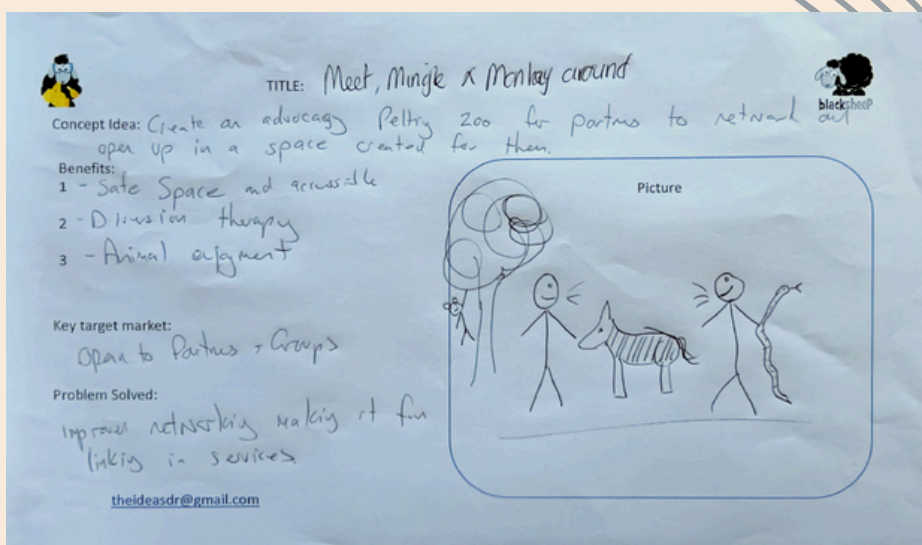 TITLE: Meet, Mingle & Monkey around
blacksheep
Concept Idea: Create an advocacy Petting Zoo for partners to network and
open up in a space created for them.
Benefits:
1 - Safe Space and accessible
2 - Diversion therapy
3 - Animal
Picture
Key target market:
Open to Partners + Groups
Problem Solved:
Improves networking making it fun
linking in services
theideasdr@gmail.com